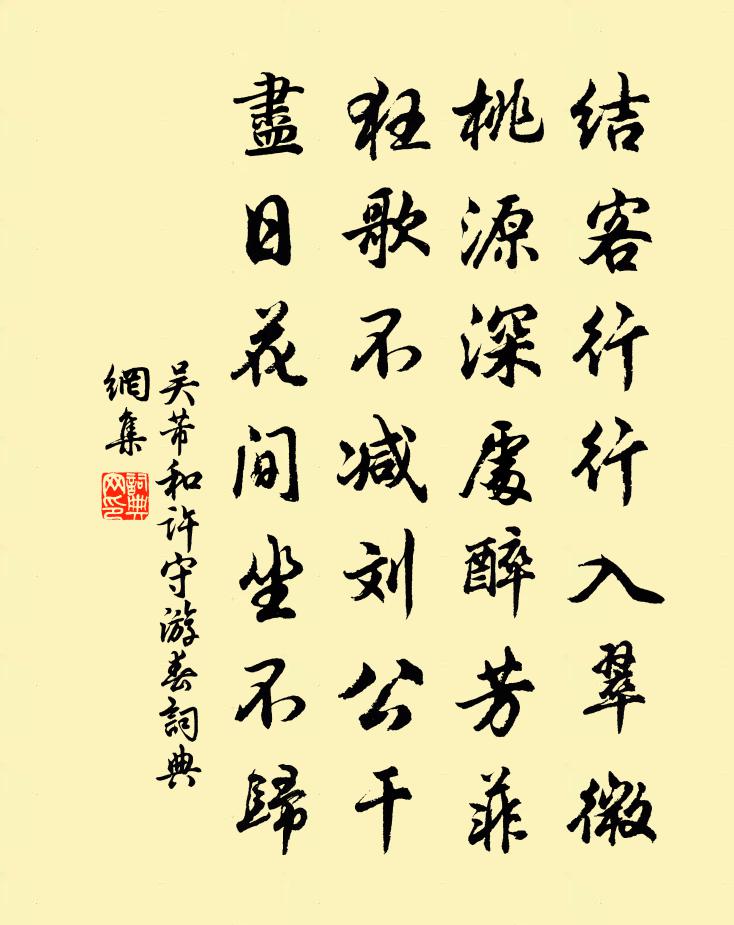 结客行行入翠微
桃源深處醉芳菲
狂歌不减刘公干
盡日花间坐不歸
吴芾和许守游春詞典
網集
詞典
网印